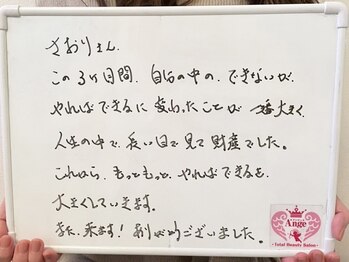 さおりさん。
この3ヶ月間、自分の中の、できないが、
やればできるに変わったことが一番大きく、
人生の中で、長い目で見て財産でした。
これからも、もっともっと、やればできるを、
大きくしていきます。
また、来ます！ありがとうございました。
Ange
-Total Beauty Salon-